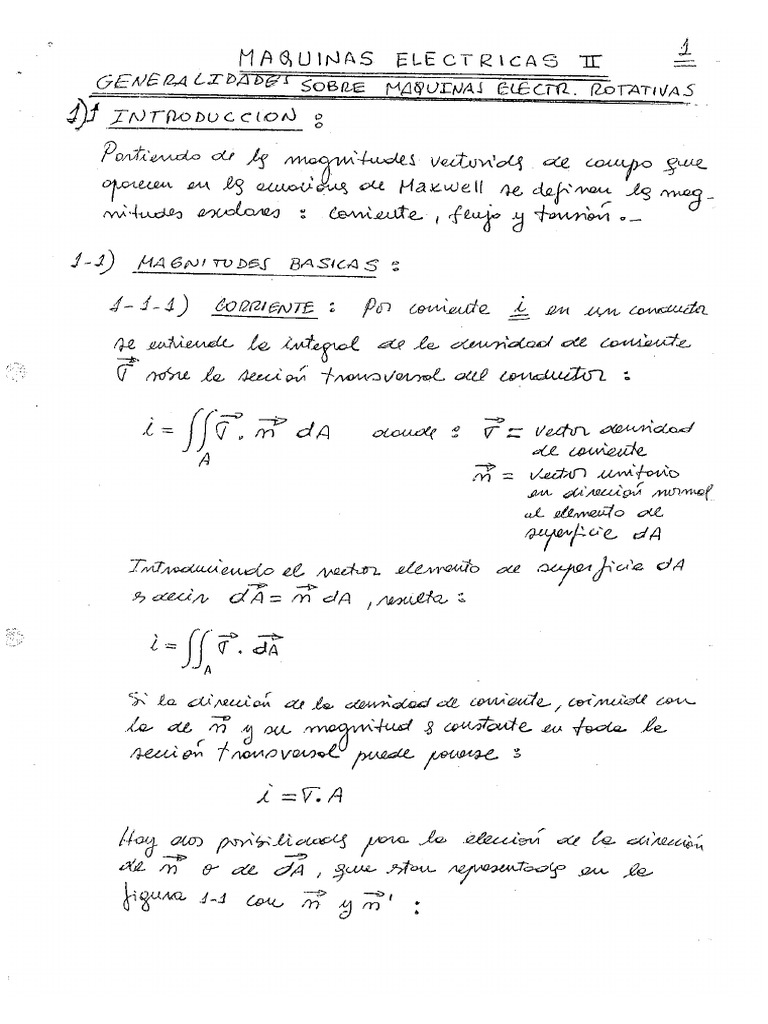 1
MAQUINAS ELECTRICAS II
GENERALIDADES SOBRE MAQUINAS ELECTR. ROTATIVAS
1) INTRODUCCION :
Partiendo de ls magnitudes vectorials de campo que
aparecen en ls ecuacions de Maxwell se definen ls mag-
nitudes escalares : corriente, flujo y tensión.-
1-1) MAGNITUDES BASICAS :
1-1-1) CORRIENTE : Por corriente i en un conductor
se entiende la integral de la densidad de corriente
σ⃗ sobre la sección transversal del conductor :
i = ∬_A σ⃗ . n⃗ dA donde : σ⃗ = vector densidad
de corriente
n⃗ = vector unitario
en dirección normal
al elemento de
superficie dA
Introduciendo el vector elemento de superficie dA
es decir dA⃗ = n⃗ dA, resulta :
i = ∬_A σ⃗ . dA⃗
Si la dirección de la densidad de corriente, coincide con
la de n⃗ y su magnitud es constante en toda la
sección transversal puede ponerse :
i = σ . A
Hay dos posibilidads para la elección de la dirección
de n⃗ o de dA⃗, que estan representads en la
figura 1-1 con n⃗ y n⃗' :